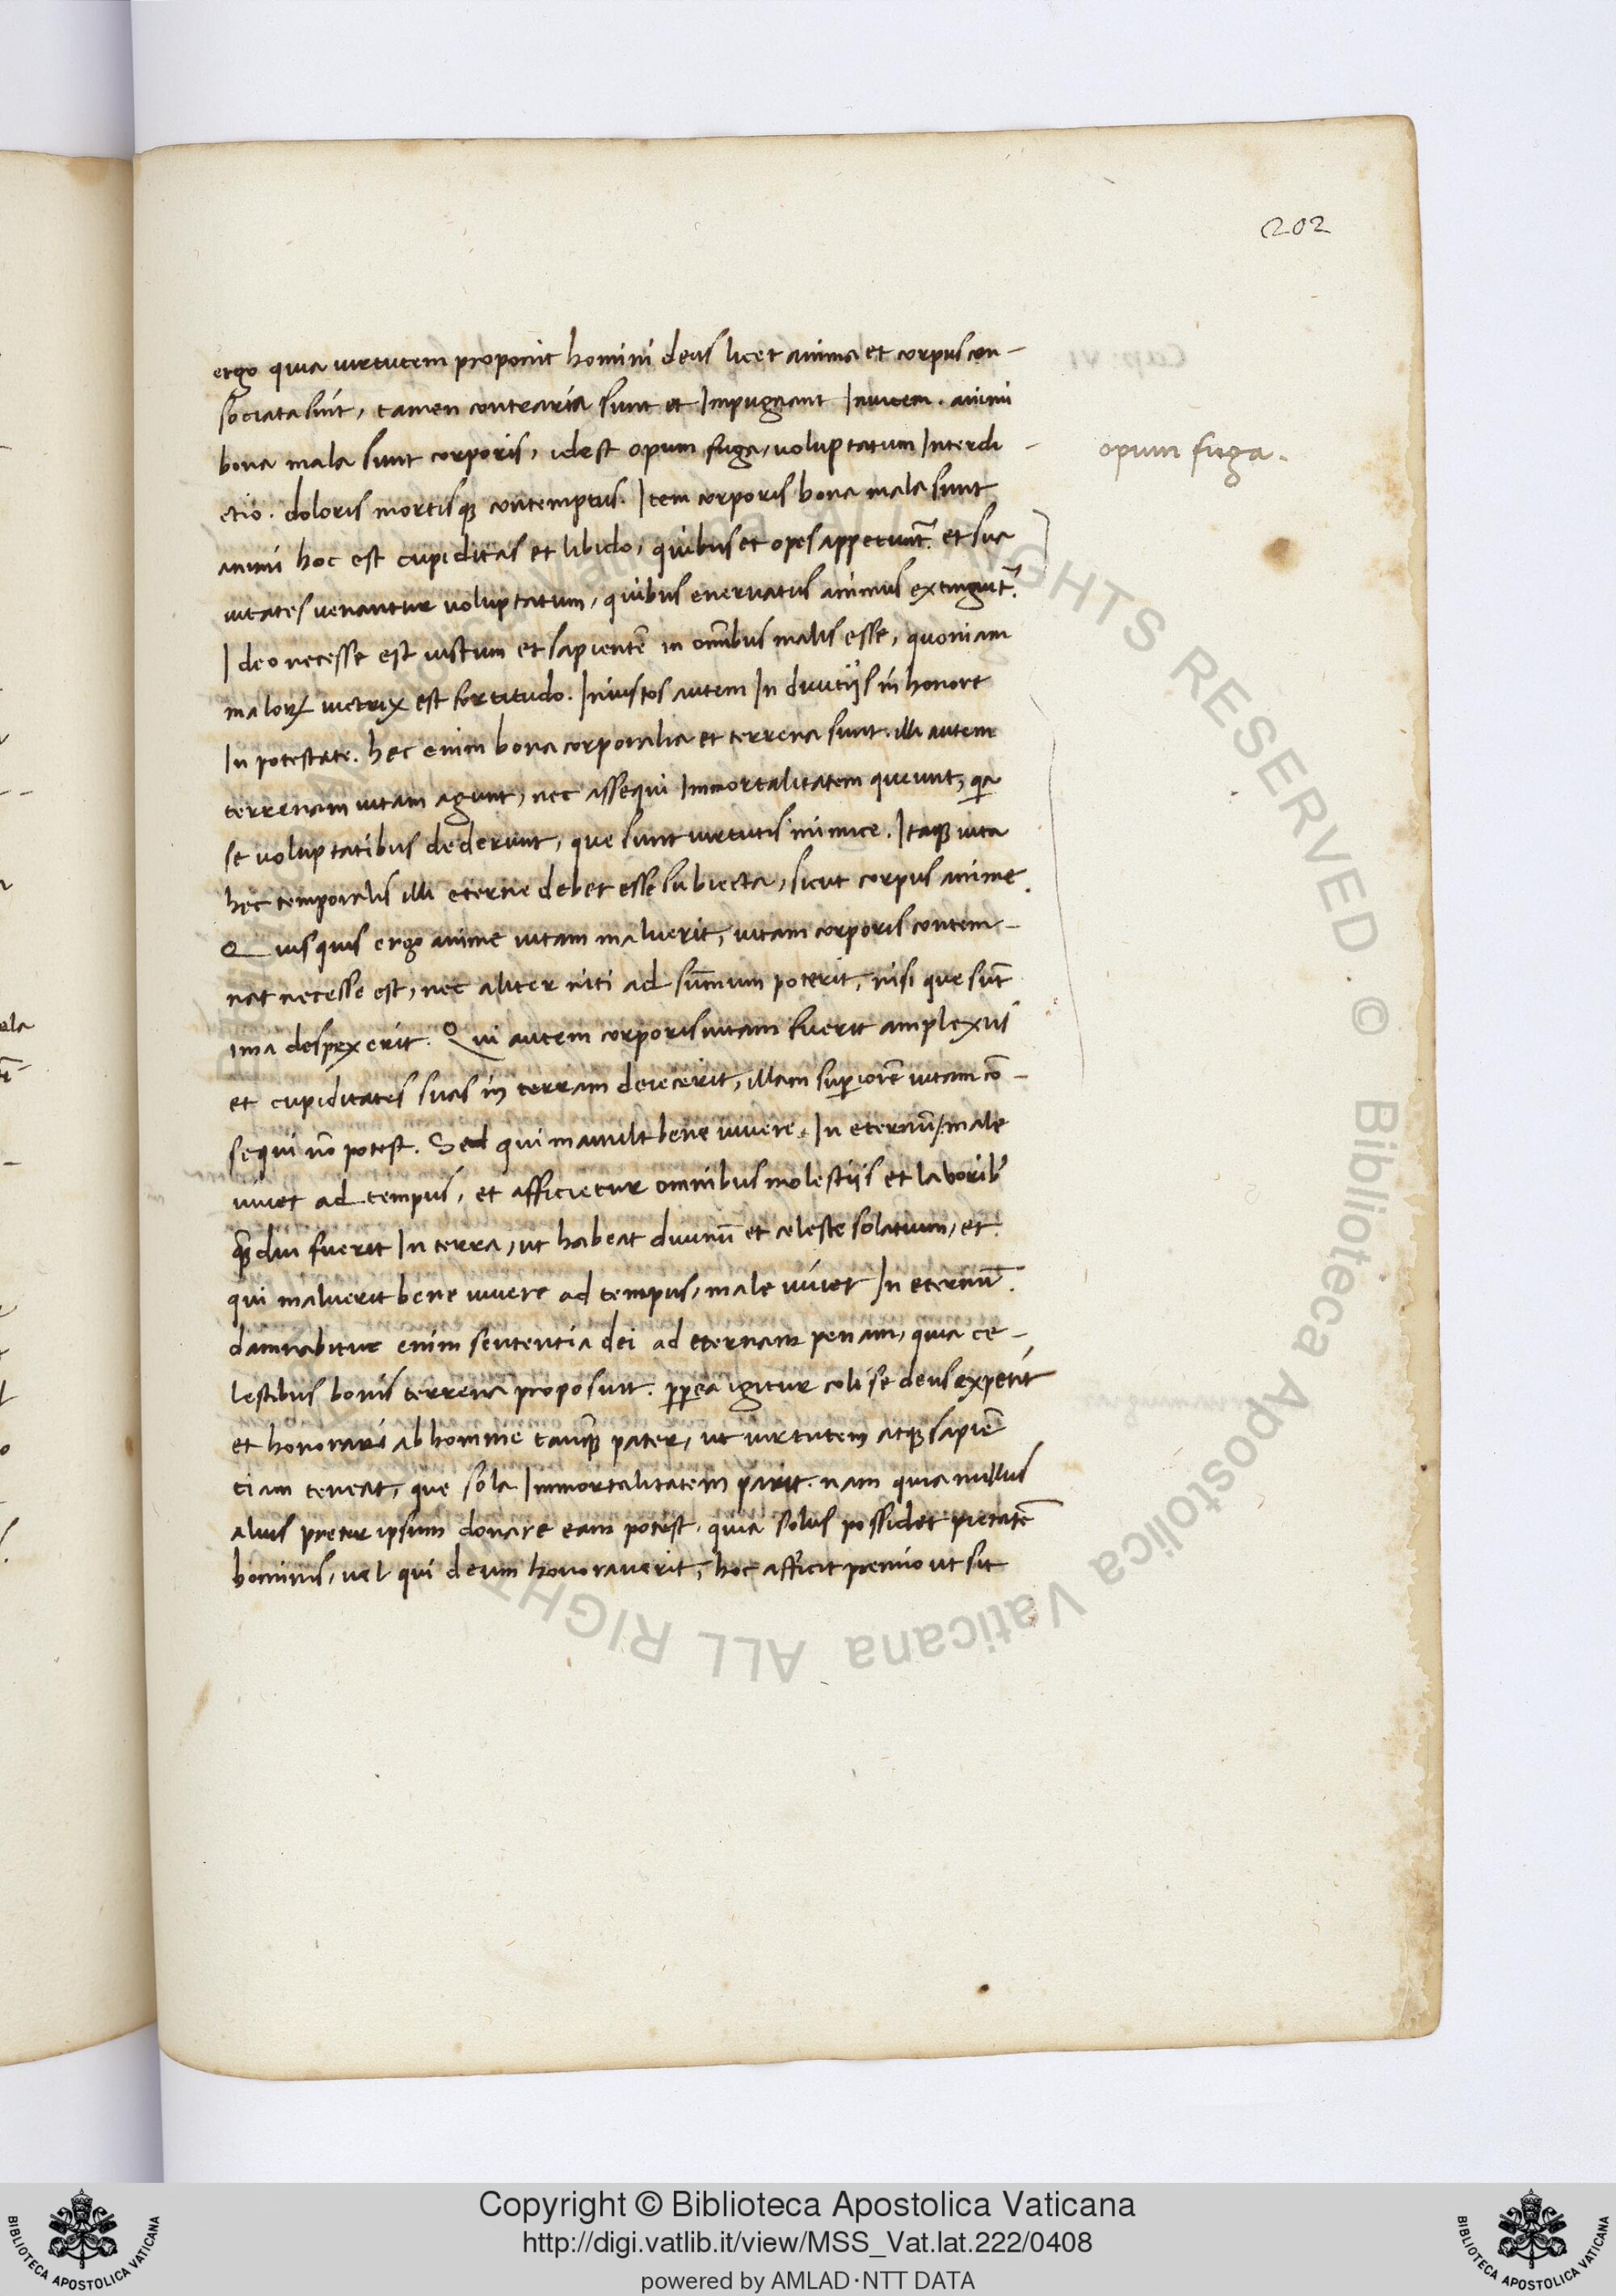 202
ergo quia uirtutem proponit homini deus licet anima et corpus con-
sociata sint, tamen contraria sunt et Impugnant Inuicem. animi
bona mala sunt corporis, idest opum fuga, uoluptatum Interdi-
ctio. doloris mortisq; contemptus. Item corporis bona mala sunt
animi hoc est cupiditas et libido, quibus et opes appetunt̃. et sua
uitates uenantur uoluptatum, quibus eneruatus animus extinguit̃.
Ideo necesse est iustum et sapientẽ in om̃ibus malis esse, quoniam
malorꝝ uictrix est fortitudo. Iniustos autem In diuitijs in honore
In potestate. hęc enim bona corporalia et terrena sunt. illi autem
terrenam uitam agunt, nec assequi Immortalitatem queunt, qa
se uoluptatibus dederunt, que sunt uirtutis inimice. Itaq; uita
hęc temporalis illi eterne debet esse subiecta, sicut corpus anime.
Quisquis ergo anime uitam maluerit, uitam corporis contem-
nat necesse est, nec aliter niti ad sum̃um poterit, nisi que sunt̃
ima despexerit. Qui autem corporis uitam fuerit amplexus
et cupiditates suas in terram deiecerit, illam superiorẽ uitam cõ-
sequi nõ potest. Sed qui mauult bene uiuere, In eternũ/ male
uiuet ad tempus, et afficietur omnibus molestijs et laborib'
qᷓdiu fuerit In terra, ut habeat diuinũ et celeste solatium, et
qui maluerit bene uiuere ad tempus, male uiuet In eternũ.
damnabitur enim sententia dei ad eternam penam, quia ce-
lestibus bonis terrena proposuit. ꝓpterea igitur coli se deus expetit
et honorari ab homine tanq̃ pater, ut uirtutem atq; sapiẽ
tiam teneat, que sola Immortalitatem parit. nam quia nullus
alius preter ipsum donare eam potest, quia solus possidet pietatẽ
hominis, uel qui deum honorauerit, hoc afficit premio ut sit
opum fuga.
Copyright © Biblioteca Apostolica Vaticana
http://digi.vatlib.it/view/MSS_Vat.lat.222/0408
powered by AMLAD·NTT DATA